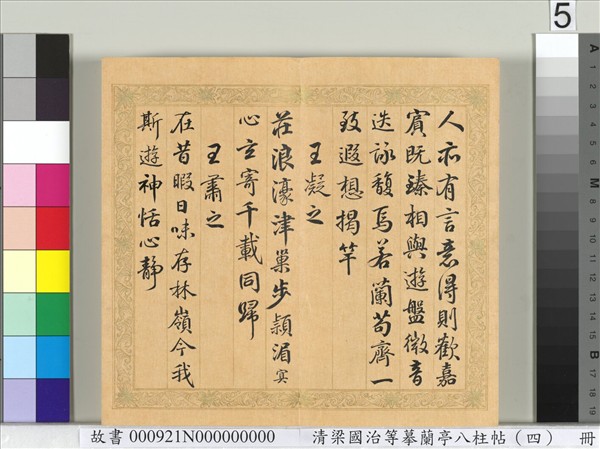 5
人亦有言意得則歡嘉
賓既臻相與遊盤微音
迭詠馥焉若蘭苟齊一
致遐想揭竿
王凝之
莊浪濠津巢步潁湄冥
心玄寄千載同歸
王肅之
在昔暇日味存林嶺今我
斯遊神恬心靜
A
1
2
3
4
5
6
M
8
9
10
11
12
13
14
15
B
17
18
19
故書 000921N000000000 清梁國治等摹蘭亭八柱帖（四） 冊